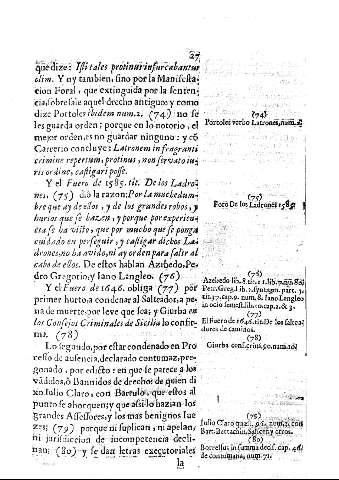 27
que dize: Isti tales protinus infurcabantur
olim. Y uy tambien, sino por la Manifesta-
cion Foral, que extinguida por la senten-
cia, sobresale aquel drecho antiguo y como
dize Portoles ibidem num. 2. (74) no se
les guarda orden; porque en lo notorio, el
mejor orden, es no guardar ninguno: y cō
Carerio concluye: Latronem in fragranti
crimine repertum, protinus, non servato iu-
ris ordine, castigari posse.
Y el Fuero de 1585. tit. De los Ladro-
nes, (75) dà la razon: Por la muchedum-
bre que ay de ellos, y de los grandes robos, y
hurtos que se hazen, y porque por experiēn-
cia se ha visto, que por mucho que se ponga
cuidado en perseguir, y castigar dichos La-
drones, no ha avido, ni ay orden para salir al
cabo de ellos. De estos hablan Azebedo, Pe-
dro Gregorio, y Iano Langleo. (76)
Y el Fuero de 1646. obliga (77) por
primer hurto, a condenar al Salteador, a pe-
na de muerte, por leve que sea; y Giurba en
los Consejos Criminales de Sicilia lo confir-
ma. (78)
Lo segundo, por estar condenado en Pro
cesso de ausencia, declarado contumaz, pre-
gonado, por edicto: en que se parece a los
vādidos, ò Bannidos de drecho: de quien di
xo Julio Claro, con Bartulo, que estos al
punto se ahorquen; y que assi lo hazian los
grandes Assessores, y los mas benignos Iue
zes; (79) porque ni suplican, ni apelan,
ni jurisdiccion de incompetencia decli-
nan: (80) y se dan letras executoriales
la
(74)
Portoles verbo Latrones, num. 2.
(75)
Foro De los Ladrones 1585.
(76)
Azebedo lib. 8. tit. 11. lib.
Petr. Greg. lib. syntagm. part. 3.
tit. 37. cap. 9. num. 8. Iano Langleo
in ocio semest. lib. 10. cap. 2. & 3.
(77)
El Fuero de 1646. tit. De los saltea-
dores de caminos.
(78)
Giurba conf. crim. 90. num. 
(79)
Julio Claro quæst. 96. num. 2. con
Bart. Bertachin, Saliceto y otros.
(80)
Borrellus in summa decis. cap. 46.
de contumacia, num. 71.